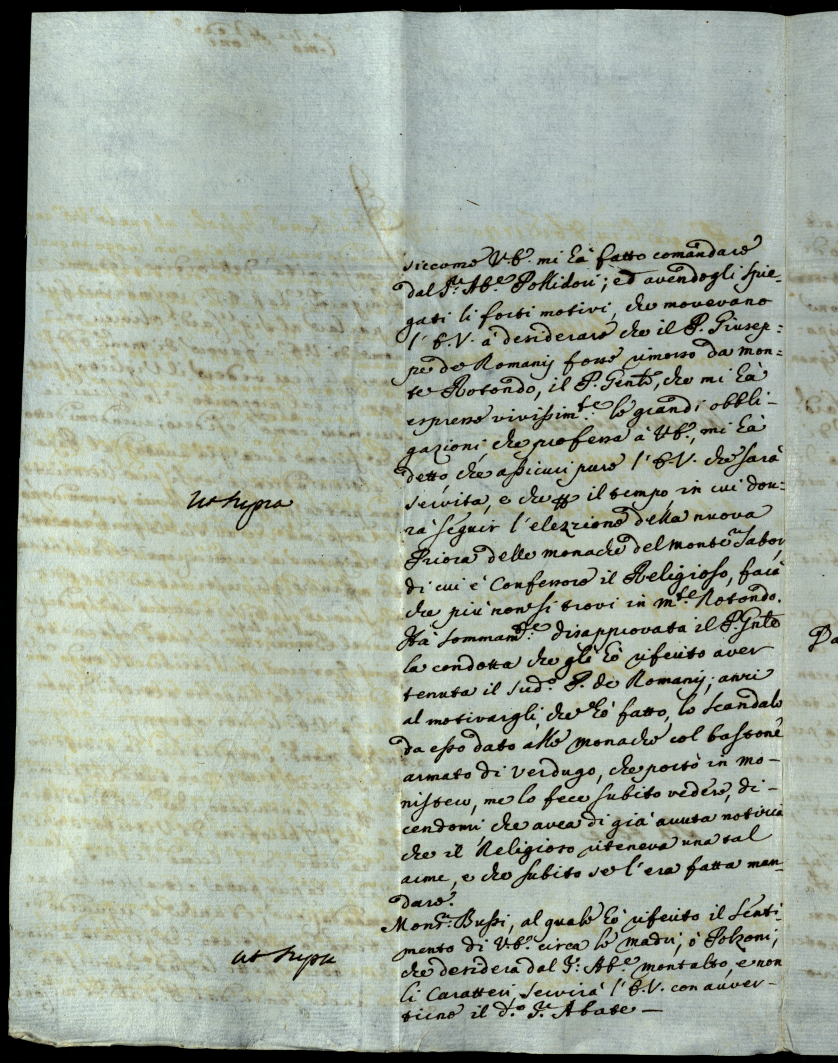 siccome V.E. mi hà fatto comandare
dal Sr. Abe. Pollidori; ed avendogli spie-
gati li forti motivi, che movevano
l'E.V. à desiderare che il P. Giusep-
pe de Romanij fosse rimosso da Mon-
te Rotondo, il P. Gente, che mi hà
espresso vivissimte. le grandi obbli-
gazioni, che professa à V.E., mi hà
detto, che assicuri pure l'E.V. che sarà
servita, e che il tempo in cui dov-
rà seguir l'elezzione della nuova
Priora delle monache del monte Tabor,
di cui è Confessore il Religioso, farà
che più non si trovi in mte. Rotondo.
Hà sommamte. disapprovata il P. Gnle
la condotta che gli hò riferito aver
tenuta il sudo. P. de Romanij; anzi
al motivargli, che hò fatto, lo scandalo
da esso dato alle monache col bastone
armato di verdugo, che portò in mo-
nistero, me lo fece subito vedere, di-
cendomi, che avea di già avuta notizia
che il Religioso riteneva una tal
arme, e che subito se l'era fatta man-
dare.
Ut supra
Monsr. Bussi, al quale hò riferito il senti-
mento di V.E. circa le madri, ò Polzoni,
che desidera dal Sr. Abe. Montalto, e non
li Caratteri servirà l'E.V. con avver-
tirne il do. Sr. Abate —
ut supra